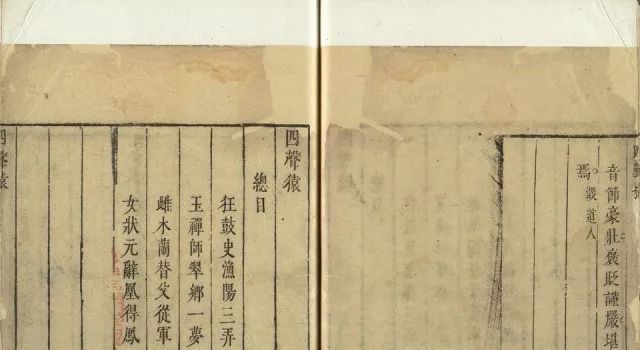 音節豪壯褒貶謹嚴堪
焉 澂道人
四聲猿
總目
狂鼓史漁陽三弄
玉禪師翠鄉一夢
雌木蘭替父從軍
女狀元辭凰得鳳
四聲猿